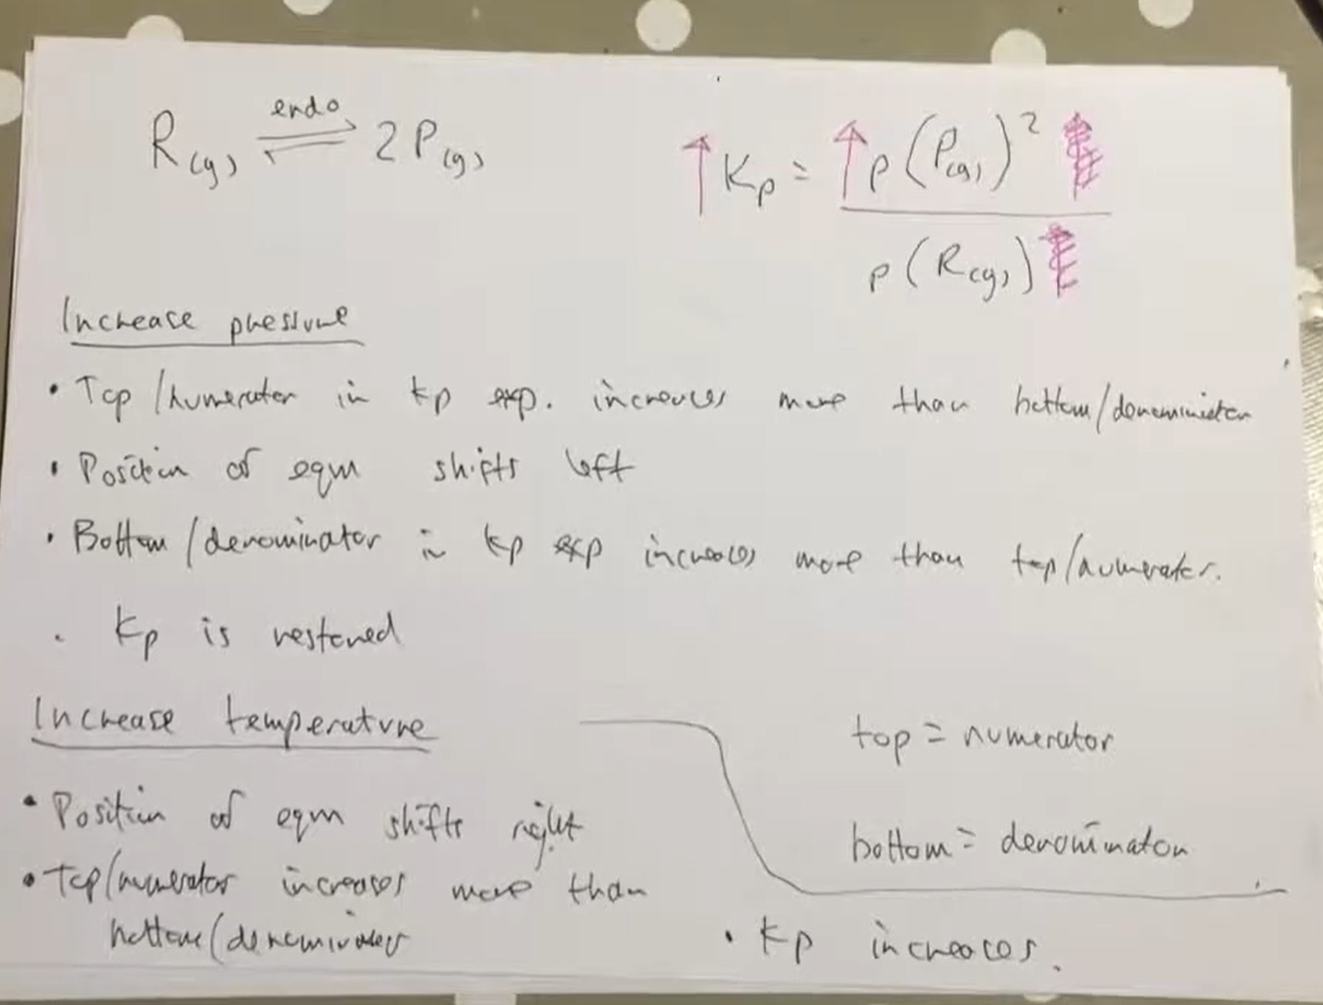 R(g) ⇌ 2P(g)
endo
↑Kp = ↑p(P(g))²
p(R(g))
Increase pressure
• Top/numerator in Kp exp. increases more than bottom/denominator
• Position of eqm shifts left
• Bottom/denominator in Kp exp increases more than top/numerator.
• Kp is restored
Increase temperature
• Position of eqm shifts right
• Top/numerator increases more than
bottom/denominator
top = numerator
bottom = denominator
• Kp increases.